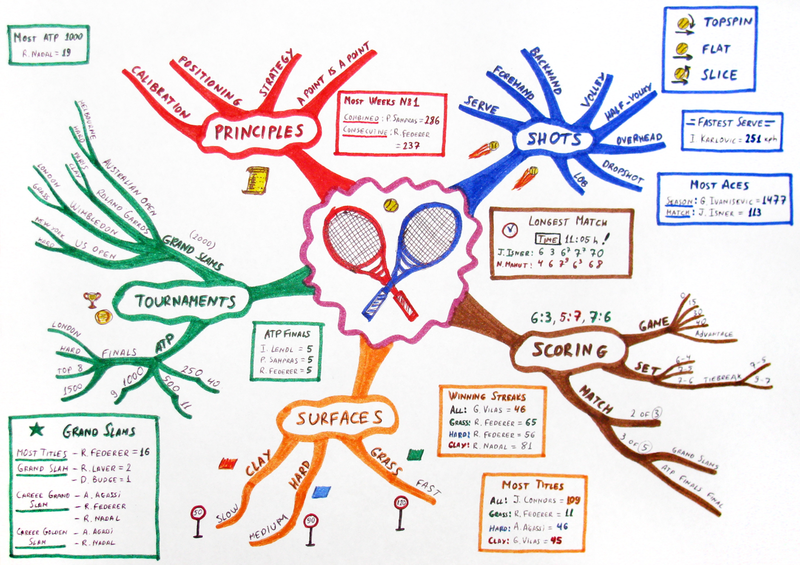 MOST ATP 1000
R. NADAL = 19
CALIBRATION
POSITIONING
STRATEGY
A POINT IS A POINT
PRINCIPLES
MOST WEEKS N81
COMBINED: P. SAMPRAS = 286
CONSECUTIVE: R. FEDERER
= 237
SERVE
FOREHAND
BACKHAND
VOLLEY
HALF-VOLLEY
OVERHEAD
DROPSHOT
LOB
SHOTS
TOPSPIN
FLAT
SLICE
FASTEST SERVE
I. KARLOVIC = 251 kph
MOST ACES
SEASON: G. IVANISEVIC = 1477
MATCH: J. ISNER = 113
LONGEST MATCH
TIME 11:05 h!
J. ISNER: 6 3 6⁷ 7⁷ 70
N. MAHUT: 4 6 7⁹ 6³ 68
MELBOURNE
HARD
AUSTRALIAN OPEN
PARIS
CLAY
ROLAND GARROS
LONDON
GRASS
WIMBLEDON
NEW YORK
HARD
US OPEN
(2000)
GRAND SLAMS
TOURNAMENTS
ATP
FINALS
LONDON
HARD
TOP 8
1500
1000
9
500
11
250
40
ATP FINALS
I. LENDL = 5
P. SAMPRAS = 5
R. FEDERER = 5
6:3, 5:7, 7:6
SCORING
GAME
0
15
40
ADVANTAGE
SET
6-4
7-5
7-6
TIEBREAK
7-5
9-7
MATCH
2 OF 3
3 OF 5
GRAND SLAMS
ATP FINALS FINAL
SURFACES
CLAY
SLOW
50
HARD
MEDIUM
90
GRASS
FAST
130
WINNING STREAKS
ALL: G. VILAS = 46
GRASS: R. FEDERER = 65
HARD: R. FEDERER = 56
CLAY: R. NADAL = 81
MOST TITLES
ALL: J. CONNORS = 109
GRASS: R. FEDERER = 11
HARD: A. AGASSI = 46
CLAY: G. VILAS = 45
GRAND SLAMS
MOST TITLES – R. FEDERER = 16
GRAND SLAM – R. LAVER = 2
– D. BUDGE = 1
CAREER GRAND SLAM – A. AGASSI
– R. FEDERER
– R. NADAL
CAREER GOLDEN SLAM – A. AGASSI
– R. NADAL